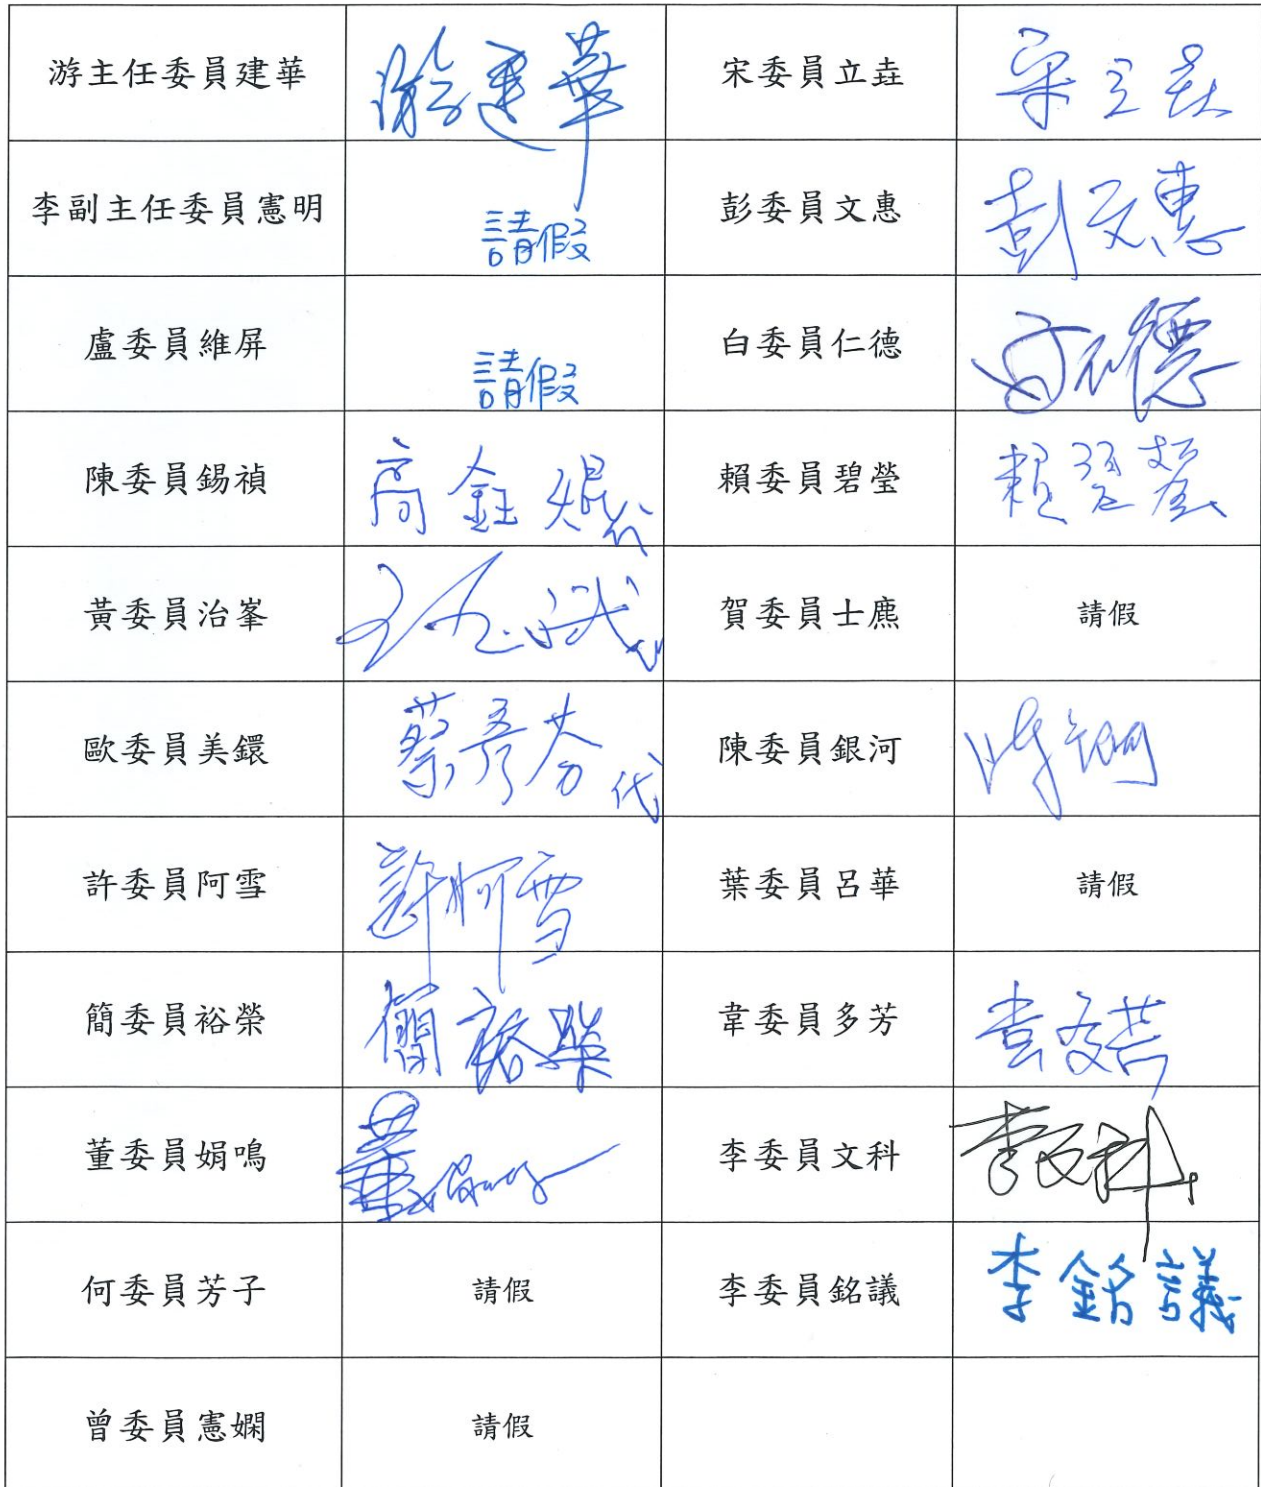 游主任委員建華 游建華 宋委員立垚 宋立垚
李副主任委員憲明 請假 彭委員文惠 彭文惠
盧委員維屏 請假 白委員仁德 白仁德
陳委員錫禎 高鈺焜代 賴委員碧瑩 賴碧瑩
黃委員治峯 賀委員士麃 請假
歐委員美鐶 蔡彥芬代 陳委員銀河 陳銀河
許委員阿雪 許阿雪 葉委員呂華 請假
簡委員裕榮 簡裕榮 韋委員多芳 韋多芳
董委員娟鳴 董娟鳴 李委員文科 李文科
何委員芳子 請假 李委員銘議 李銘議
曾委員憲嫻 請假